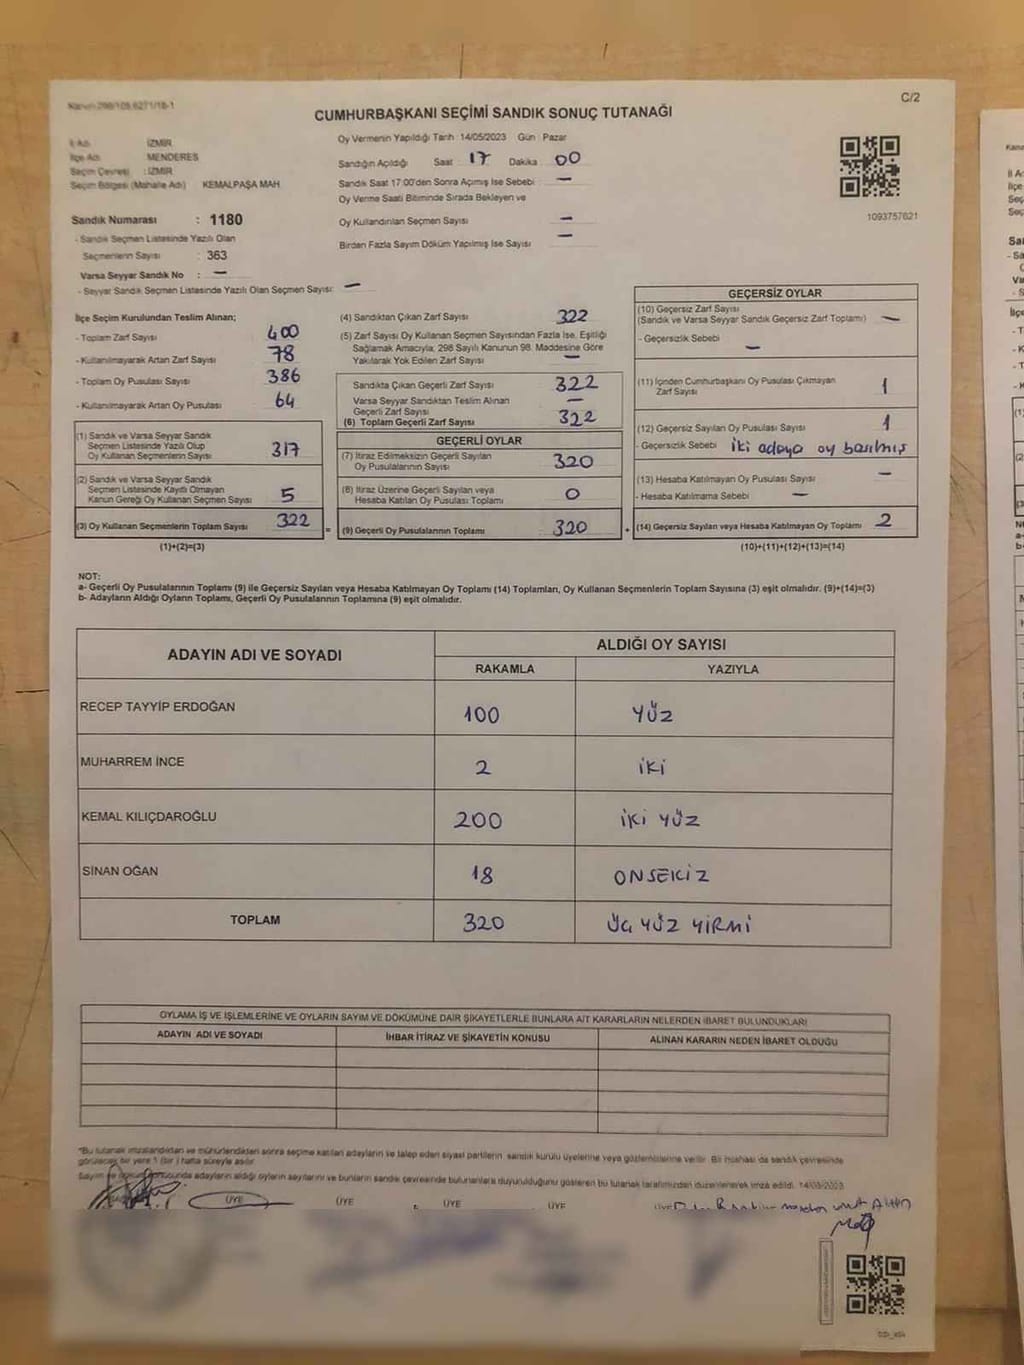 Kanun 298/105,6271/18-1
C/2
CUMHURBAŞKANI SEÇİMİ SANDIK SONUÇ TUTANAĞI
İl Adı : İZMİR
İlçe Adı : MENDERES
Seçim Çevresi : İZMİR
Seçim Bölgesi (Mahalle Adı) KEMALPAŞA MAH
Sandık Numarası : 1180
- Sandık Seçmen Listesinde Yazılı Olan
Seçmenlerin Sayısı : 363
Varsa Seyyar Sandık No : —
- Seyyar Sandık Seçmen Listesinde Yazılı Olan Seçmen Sayısı: —
Oy Vermenin Yapıldığı Tarih 14/05/2023 Gün Pazar
Sandığın Açıldığı Saat 17 Dakika 00
Sandık Saat 17:00'den Sonra Açımış İse Sebebi —
Oy Verme Saati Bitiminde Sırada Bekleyen ve
Oy Kullandırılan Seçmen Sayısı —
Birdan Fazla Sayım Döküm Yapılmış İse Sayısı —
1093757621
İlçe Seçim Kurulundan Teslim Alınan;
- Toplam Zarf Sayısı 400
- Kullanılmayarak Artan Zarf Sayısı 78
- Toplam Oy Pusulası Sayısı 386
- Kullanılmayarak Artan Oy Pusulası 64
(1) Sandık ve Varsa Seyyar Sandık
Seçmen Listesinde Yazılı Olup
Oy Kullanan Seçmenlerin Sayısı 317
(2) Sandık ve Varsa Seyyar Sandık
Seçmen Listesinde Kayıtlı Olmayan
Kanun Gereği Oy Kullanan Seçmen Sayısı 5
(3) Oy Kullanan Seçmenlerin Toplam Sayısı 322
(1)+(2)=(3)
(4) Sandıktan Çıkan Zarf Sayısı 322
(5) Zarf Sayısı Oy Kullanan Seçmen Sayısından Fazla İse, Eşitliği
Sağlamak Amacıyla, 298 Sayılı Kanunun 98. Maddesine Göre
Yakılarak Yok Edilen Zarf Sayısı —
Sandıkta Çıkan Geçerli Zarf Sayısı 322
Varsa Seyyar Sandıktan Teslim Alınan
Geçerli Zarf Sayısı —
(6) Toplam Geçerli Zarf Sayısı 322
GEÇERLİ OYLAR
(7) İtiraz Edilmeksizin Geçerli Sayılan
Oy Pusulalarının Sayısı 320
(8) İtiraz Üzerine Geçerli Sayılan veya
Hesaba Katılan Oy Pusulası Toplamı 0
= (9) Geçerli Oy Pusulalarının Toplamı 320 +
GEÇERSİZ OYLAR
(10) Geçersiz Zarf Sayısı
(Sandık ve Varsa Seyyar Sandık Geçersiz Zarf Toplamı) —
- Geçersizlik Sebebi: —
(11) İçinden Cumhurbaşkanı Oy Pusulası Çıkmayan
Zarf Sayısı 1
(12) Geçersiz Sayılan Oy Pusulası Sayısı 1
- Geçersizlik Sebebi iki adaya oy basılmış
(13) Hesaba Katılmayan Oy Pusulası Sayısı —
- Hesaba Katılmama Sebebi —
(14) Geçersiz Sayılan veya Hesaba Katılmayan Oy Toplamı 2
(10)+(11)+(12)+(13)=(14)
NOT:
a- Geçerli Oy Pusulalarının Toplamı (9) ile Geçersiz Sayılan veya Hesaba Katılmayan Oy Toplamı (14) Toplamları, Oy Kullanan Seçmenlerin Toplam Sayısına (3) eşit olmalıdır. (9)+(14)=(3)
b- Adayların Aldığı Oyların Toplamı, Geçerli Oy Pusulalarının Toplamına (9) eşit olmalıdır.
ADAYIN ADI VE SOYADI
ALDIĞI OY SAYISI
RAKAMLA YAZIYLA
RECEP TAYYİP ERDOĞAN 100 YÜZ
MUHARREM İNCE 2 İKİ
KEMAL KILIÇDAROĞLU 200 İKİ YÜZ
SİNAN OĞAN 18 ONSEKİZ
TOPLAM 320 ÜÇ YÜZ YİRMİ
OYLAMA İŞ VE İŞLEMLERİNE VE OYLARIN SAYIM VE DÖKÜMÜNE DAİR ŞİKAYETLERLE BUNLARA AİT KARARLARIN NELERDEN İBARET BULUNDUKLARI
ADAYIN ADI VE SOYADI İHBAR İTİRAZ VE ŞİKAYETİN KONUSU ALINAN KARARIN NEDEN İBARET OLDUĞU
*Bu tutanak imzalandıktan ve mühürlendikten sonra seçime katılan adayların ve talep eden siyasi partilerin sandık kurulu üyelerine veya gözlemcilerine verilir. Bir nüshası da sandık çevresinde
görülecek bir yere 1 (bir) hafta süreyle asılır.
Sayım ve döküm sonucunda adayların aldığı oyların sayılarını ve bunların sandık çevresinde bulunanlara duyurulduğunu gösteren bu tutanak tarafımızdan düzenlenerek imza edildi. 14/05/2023
ÜYE ÜYE ÜYE ÜYE ÜYE